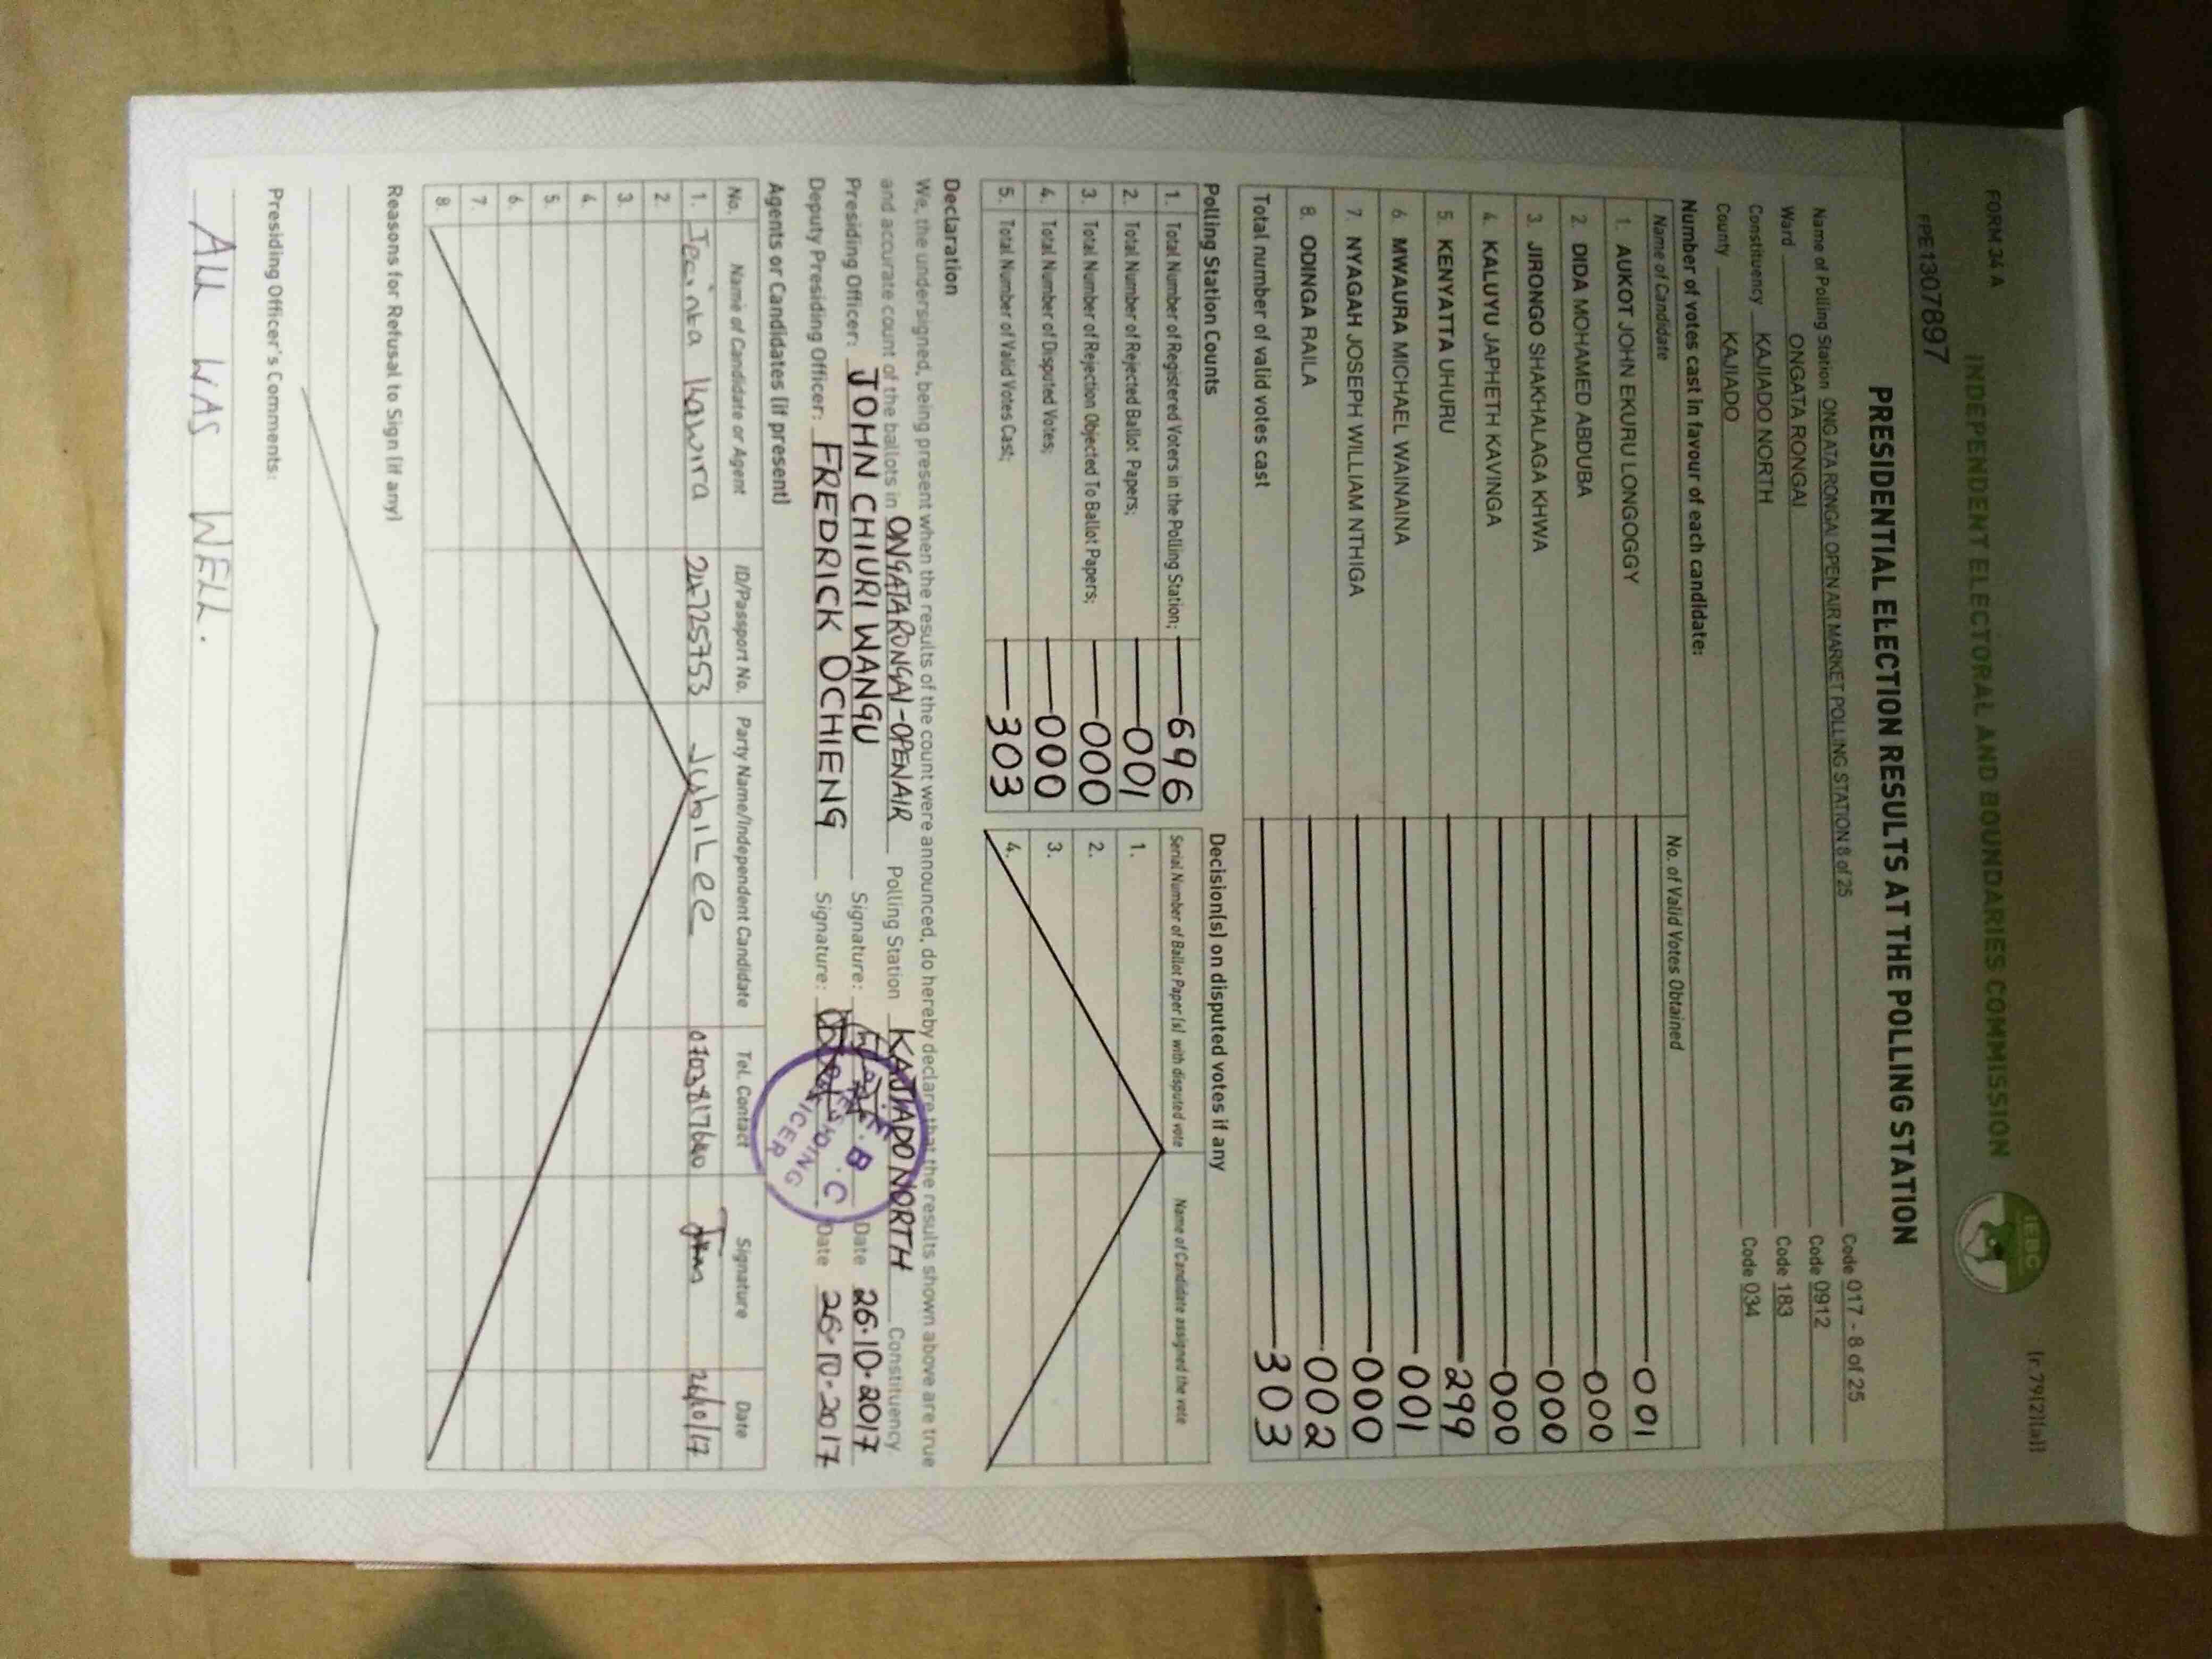 FORM 34 A
[r.79(2)(a)]
INDEPENDENT ELECTORAL AND BOUNDARIES COMMISSION
IEBC
PPE1307897
PRESIDENTIAL ELECTION RESULTS AT THE POLLING STATION
Name of Polling Station ONGATA RONGAI OPEN AIR MARKET POLLING STATION 8 of 25 Code 017 - 8 of 25
Ward ONGATA RONGAI Code 0912
Constituency KAJIADO NORTH Code 183
County KAJIADO Code 034
Number of votes cast in favour of each candidate:
Name of Candidate No. of Valid Votes Obtained
1. AUKOT JOHN EKURU LONGOGGY 001
2. DIDA MOHAMED ABDUBA 000
3. JIRONGO SHAKHALAGA KHWA 000
4. KALUYU JAPHETH KAVINGA 000
5. KENYATTA UHURU 299
6. MWAURA MICHAEL WAINAINA 001
7. NYAGAH JOSEPH WILLIAM NTHIGA 000
8. ODINGA RAILA 002
Total number of valid votes cast 303
Polling Station Counts
1. Total Number of Registered Voters in the Polling Station; 696
2. Total Number of Rejected Ballot Papers; 001
3. Total Number of Rejection Objected To Ballot Papers; 000
4. Total Number of Disputed Votes; 000
5. Total Number of Valid Votes Cast; 303
Decision(s) on disputed votes if any
Serial Number of Ballot Paper (s) with disputed vote Name of Candidate assigned the vote
1.
2.
3.
4.
Declaration
We, the undersigned, being present when the results of the count were announced, do hereby declare that the results shown above are true
and accurate count of the ballots in ONGATA RONGAI-OPENAIR Polling Station KAJIADO NORTH Constituency
Presiding Officer: JOHN CHIURI WANGU Signature: Date 26.10.2017
Deputy Presiding Officer: FREDRICK OCHIENG Signature: Date 26.10.2017
Agents or Candidates (if present)
No. Name of Candidate or Agent ID/Passport No. Party Name/Independent Candidate Tel. Contact Signature Date
1. Kawira 24725753 JubiLee 0703817640 26/10/17
2.
3.
4.
5.
6.
7.
8.
Reasons for Refusal to Sign (if any)
Presiding Officer's Comments:
ALL WAS WELL.